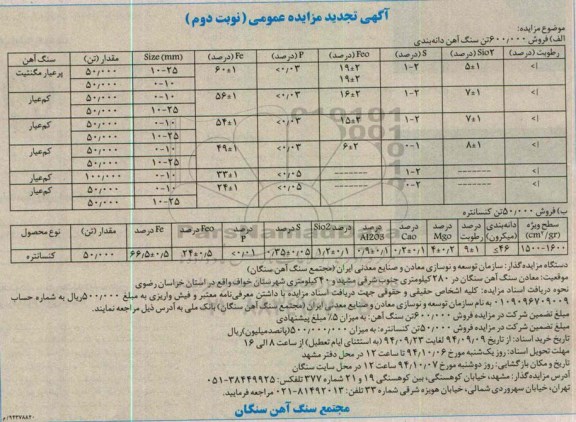 آگهی تجدید مزایده عمومی (نوبت دوم)
موضوع مزایده:
الف) فروش ۶۰۰/۰۰۰تن سنگ آهن دانه‌بندی
سنگ آهن مقدار (تن) Size (mm) Fe (درصد) P (درصد) Feo (درصد) S (درصد) Sio2 (درصد) رطوبت (درصد)
پرعیار مگنتیت ۵۰/۰۰۰ ۱۰-۲۵ ۶۰±۱ <۰/۰۳ ۱۹±۲ ۱-۲ ۵±۱ <۱
۵۰/۰۰۰ ۰-۱۰ ۱۹±۲
کم‌عیار ۵۰/۰۰۰ ۰-۱۰ ۵۶±۱ <۰/۰۳ ۱۶±۲ ۱-۲ ۷±۱ <۱
۵۰/۰۰۰ ۱۰-۲۵
کم‌عیار ۵۰/۰۰۰ ۰-۱۰ ۵۴±۱ <۰/۰۳ ۱۵±۲ ۱-۲ ۷±۱ <۱
۵۰/۰۰۰ ۱۰-۲۵
کم‌عیار ۵۰/۰۰۰ ۰-۱۰ ۴۹±۱ <۰/۰۳ ۶±۲ ۰-۱ ۸±۱ <۱
۵۰/۰۰۰ ۱۰-۲۵
کم‌عیار ۱۰۰/۰۰۰ ۰-۱۰ ۳۳±۱ <۰/۰۵ ------- ۱-۲ ------- <۱
کم‌عیار ۵۰/۰۰۰ ۰-۱۰ ۲۴±۱ <۰/۰۵ ------- ۰-۲ ------- <۱
۵۰/۰۰۰ ۱۰-۲۵
ب) فروش ۵۰/۰۰۰تن کنسانتره
نوع محصول مقدار (تن) Fe درصد Feo درصد درصد P درصد S درصد Sio2 درصد Al2O3 درصد Cao درصد Mgo درصد رطوبت دانه‌بندی (میکرون) سطح ویژه (cm²/gr)
کنسانتره ۵۰/۰۰۰ ۶۶/۵±۰/۵ ۲۴±۰/۵ <۰/۰۱ ۰/۳۵±۰/۰۵ ۱/۲±۰/۱ ۰/۹±۰/۱ ۰/۲±۰/۱ ۴±۰/۲ ۹±۱ ≤۴۶ ۱۵۰۰-۱۶۰۰
دستگاه مزایده گذار: سازمان توسعه و نوسازی معادن و صنایع معدنی ایران (مجتمع سنگ آهن سنگان)
موقعیت: معادن سنگ آهن سنگان در ۲۸۰ کیلومتری جنوب شرقی مشهد و ۴۰ کیلومتری شهرستان خواف واقع در استان خراسان رضوی
نحوه دریافت اسناد مزایده: کلیه اشخاص حقیقی و حقوقی جهت دریافت اسناد مزایده با داشتن معرفی‌نامه معتبر و فیش واریزی به مبلغ ۵۰۰/۰۰۰ریال به شماره حساب
۰۱۰۹۰۹۶۷۰۹۰۰۹ به نام سازمان توسعه و نوسازی معادن و صنایع معدنی ایران (مجتمع سنگ آهن سنگان) بانک ملی به آدرس ذیل مراجعه نمایند.
مبلغ تضمین شرکت در مزایده فروش ۶۰۰/۰۰۰تن سنگ آهن: به میزان ۵٪ مبلغ پیشنهادی
مبلغ تضمین شرکت در مزایده فروش ۵۰/۰۰۰تن کنسانتره: به میزان ۵۰۰/۰۰۰/۰۰۰ (پانصدمیلیون)ریال
تاریخ خرید اسناد: از تاریخ ۹۴/۰۹/۰۹ لغایت ۹۴/۰۹/۲۳ (به استثنای ایام تعطیل) از ساعت ۸ الی ۱۶
مهلت تحویل اسناد: روز یک‌شنبه مورخ ۹۴/۱۰/۰۶ تا ساعت ۱۲ در محل دفتر مشهد
تاریخ و مکان بازگشایی: روز دوشنبه مورخ ۹۴/۱۰/۰۷ ساعت ۱۲ در محل سایت سنگان
آدرس مزایده گذار: مشهد، خیابان کوهسنگی، بین کوهسنگی ۱۹ و ۲۱ شماره ۳۷۷ تلفکس: ۳۸۴۴۹۹۲۵-۰۵۱
تهران، خیابان سهروردی شمالی، خیابان هویزه شرقی شماره ۳۳ تلفن: ۸۱۴۹۲۰۱۳-۰۲۱ مراجعه فرمایید.
مجتمع سنگ آهن سنگان